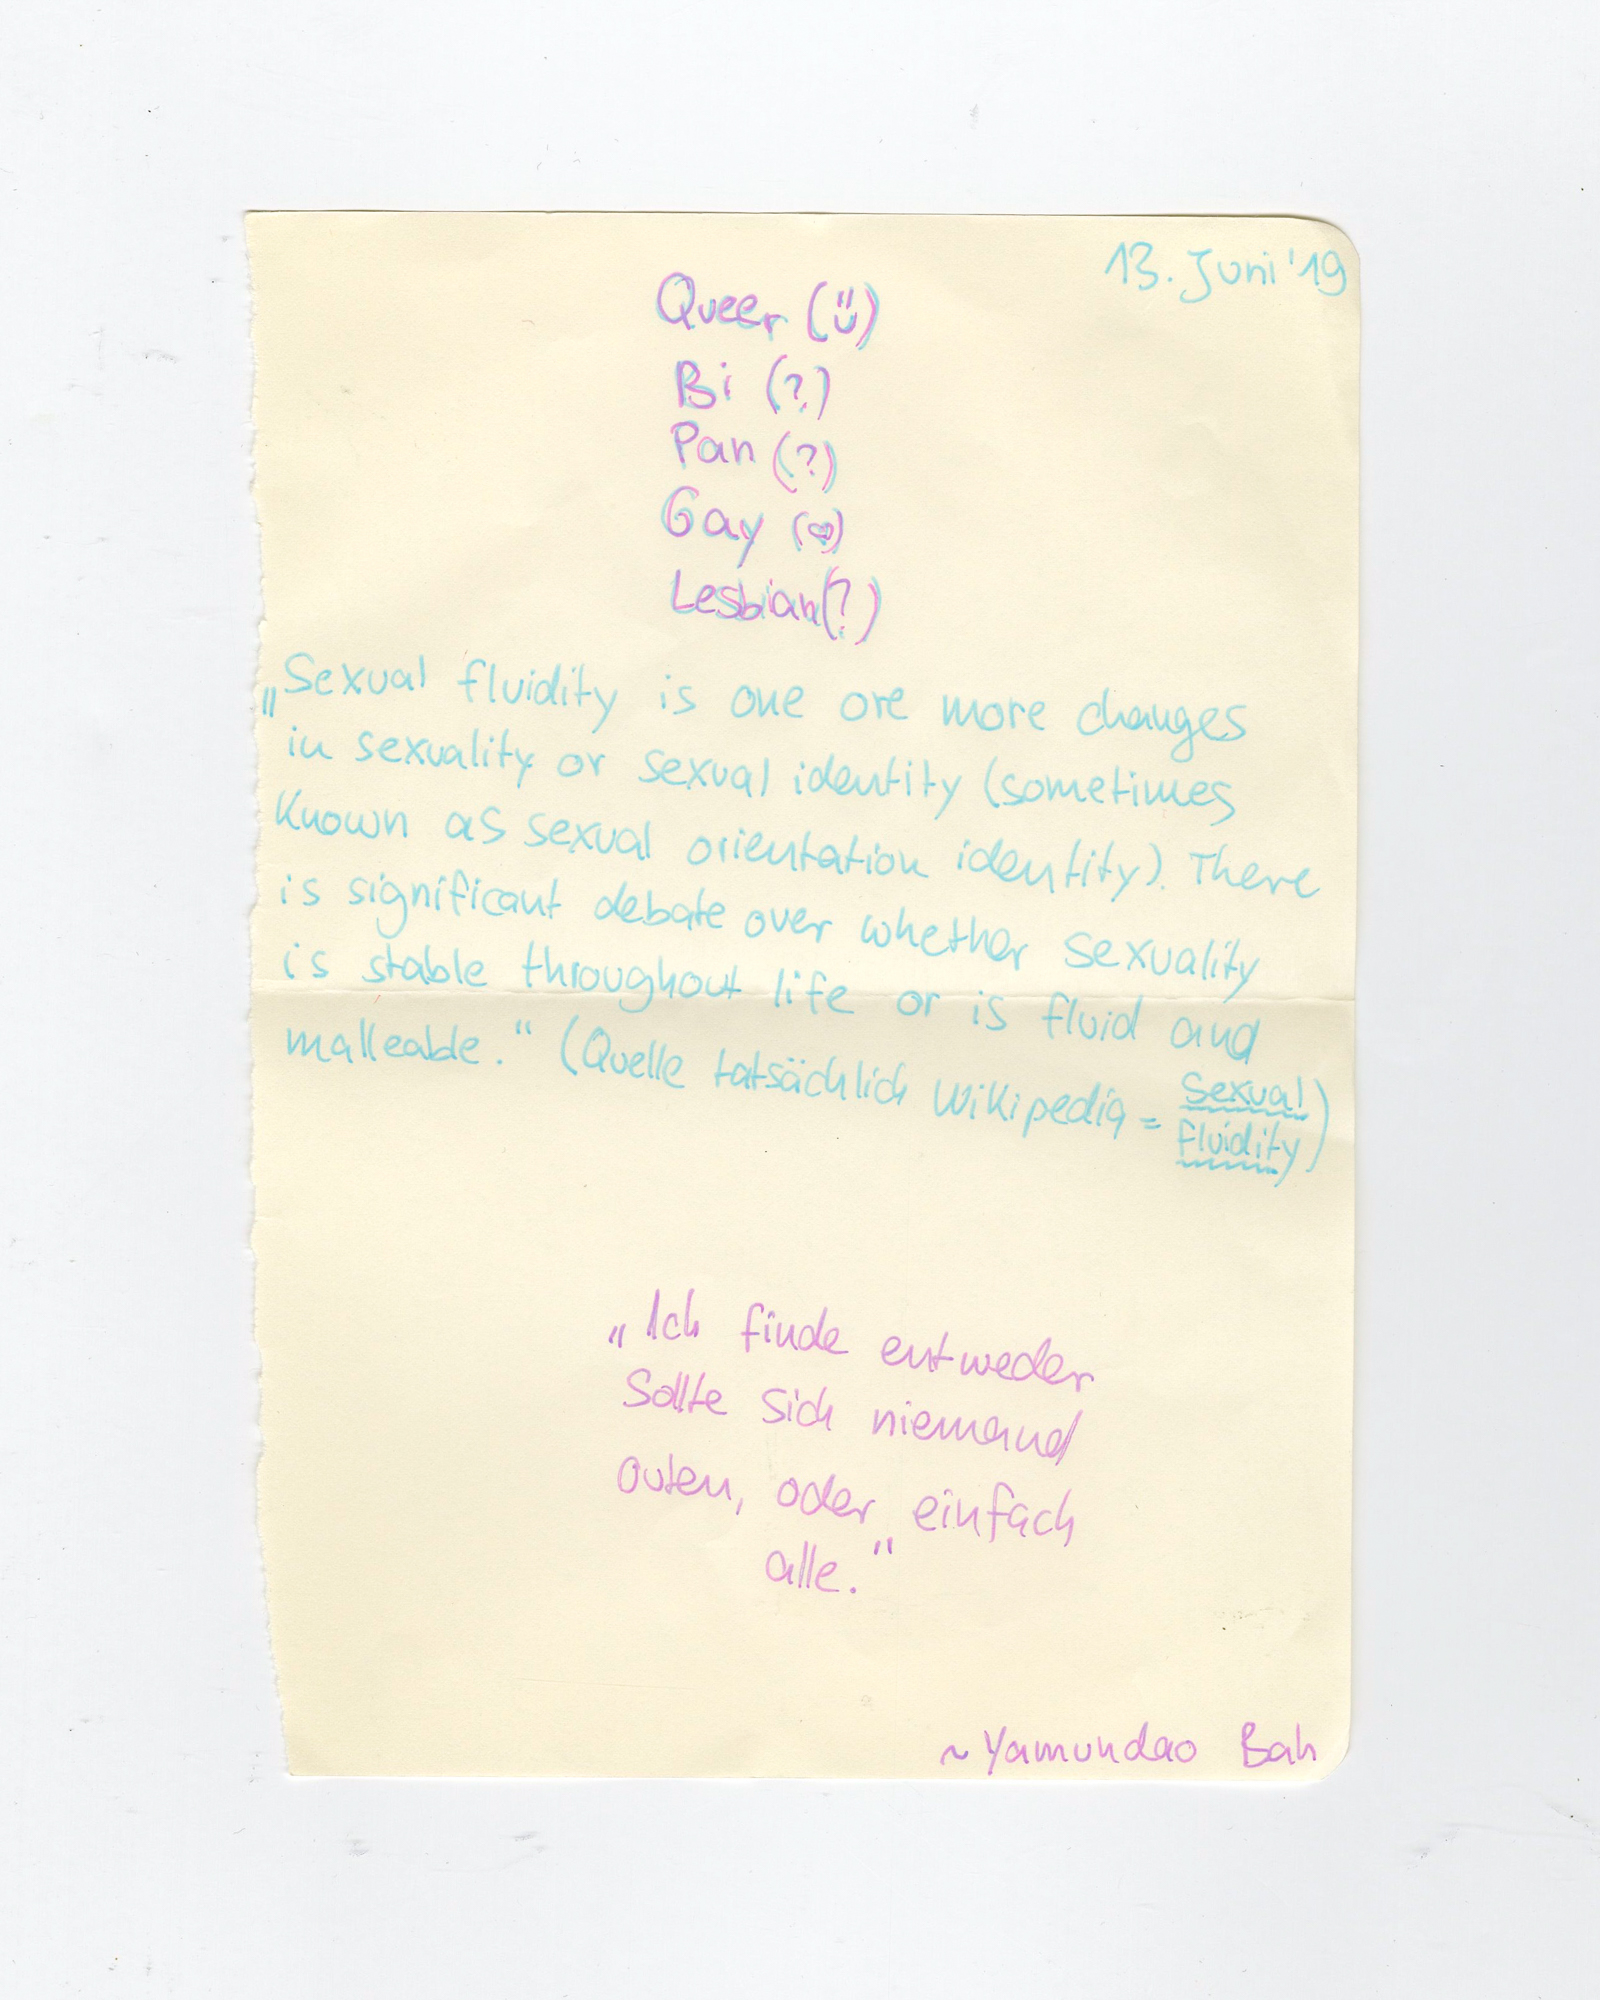 13. Juni '19
Queer (ü)
Bi (?)
Pan (?)
Gay (♡)
Lesbian (?)
„Sexual fluidity is one ore more changes
in sexuality or sexual identity (sometimes
known as sexual orientation identity). There
is significant debate over whether sexuality
is stable throughout life or is fluid and
malleable.“ (Quelle tatsächlich Wikipedia = Sexual
fluidity)
„Ich finde entweder
sollte sich niemand
outen, oder einfach
alle.“
~Yamundao Bah